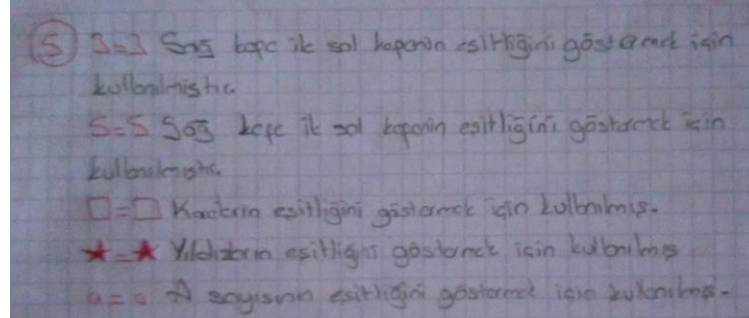 5 3=3 Sağ kepe ile sol keponin esitliğini göstermek için
kullanılmıştır.
5=5 Sağ kefe ile sol keponin esitliğini göstermek için
kullanılmıştır.
□=□ Karelerin esitliğini göstermek için kullanılmış.
★=★ Yıldızların esitliğini göstermek için kullanılmış
a=a A sayısının esitliğini göstermek için kullanılmış.